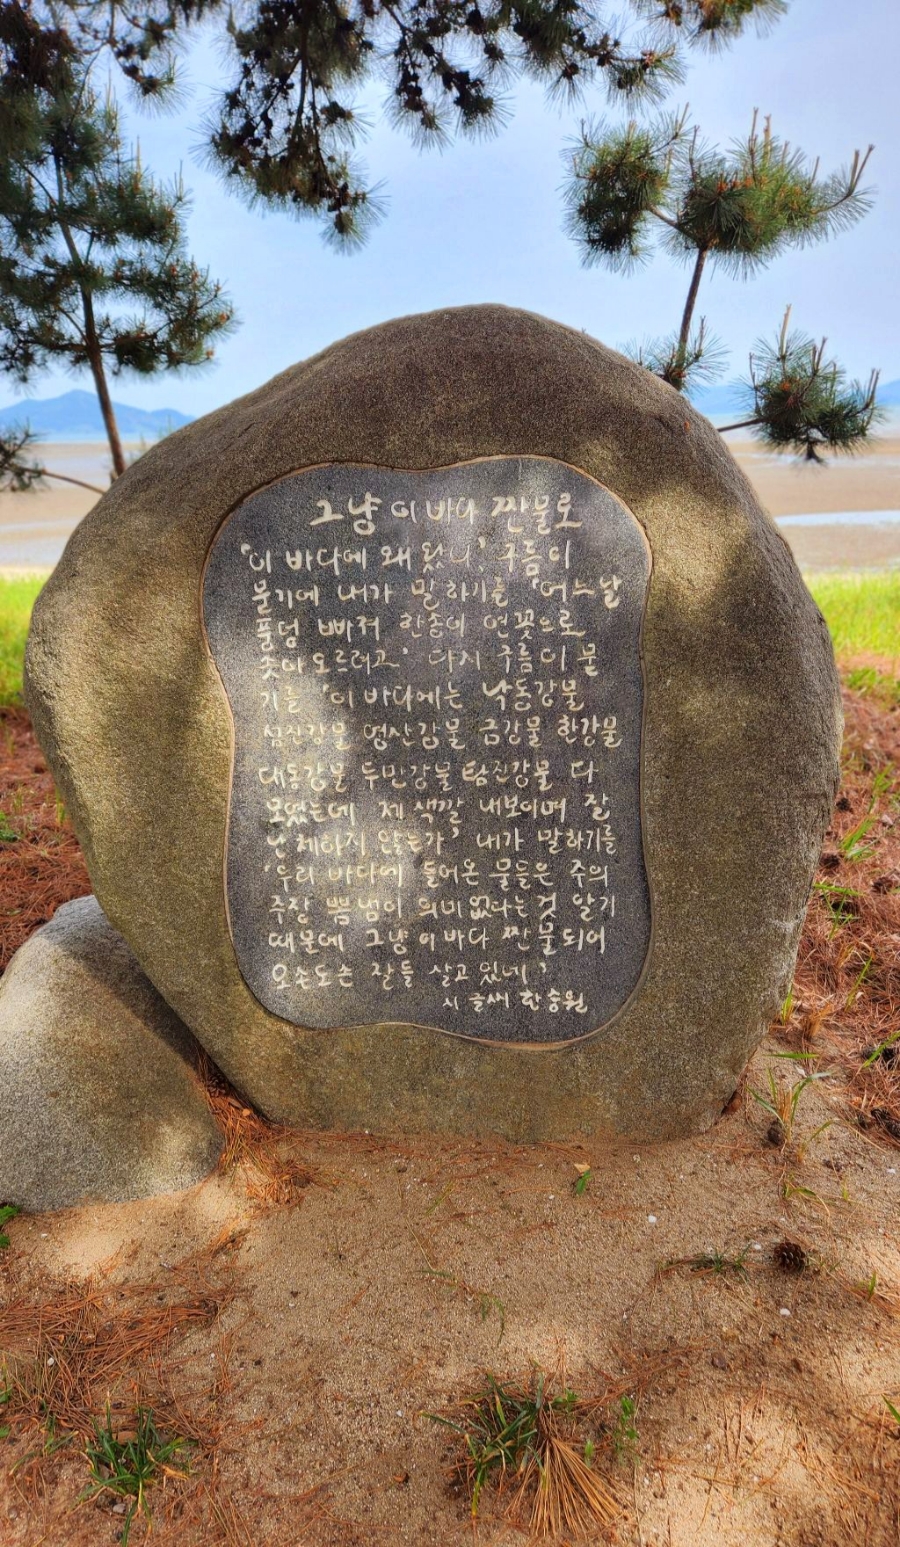 그냥 이 바다 짠물로
'이 바다에 왜 왔니?' 구름이
묻기에 내가 말하기를 '어느날
풍덩 빠져 한송이 연꽃으로
솟아오르려고' 다시 구름이 묻
기를 '이 바다에는 낙동강물
섬진강물 영산강물 금강물 한강물
대동강물 두만강물 탐진강물 다
모였는데 제 색깔 내보이며 잘
난 체하지 않는가' 내가 말하기를
'우리 바다에 들어온 물들은 주의
주장 뽐냄이 의미없다는 것 알기
때문에 그냥 이 바다 짠 물 되어
오손도손 잘들 살고 있네'
시 글씨 한승원